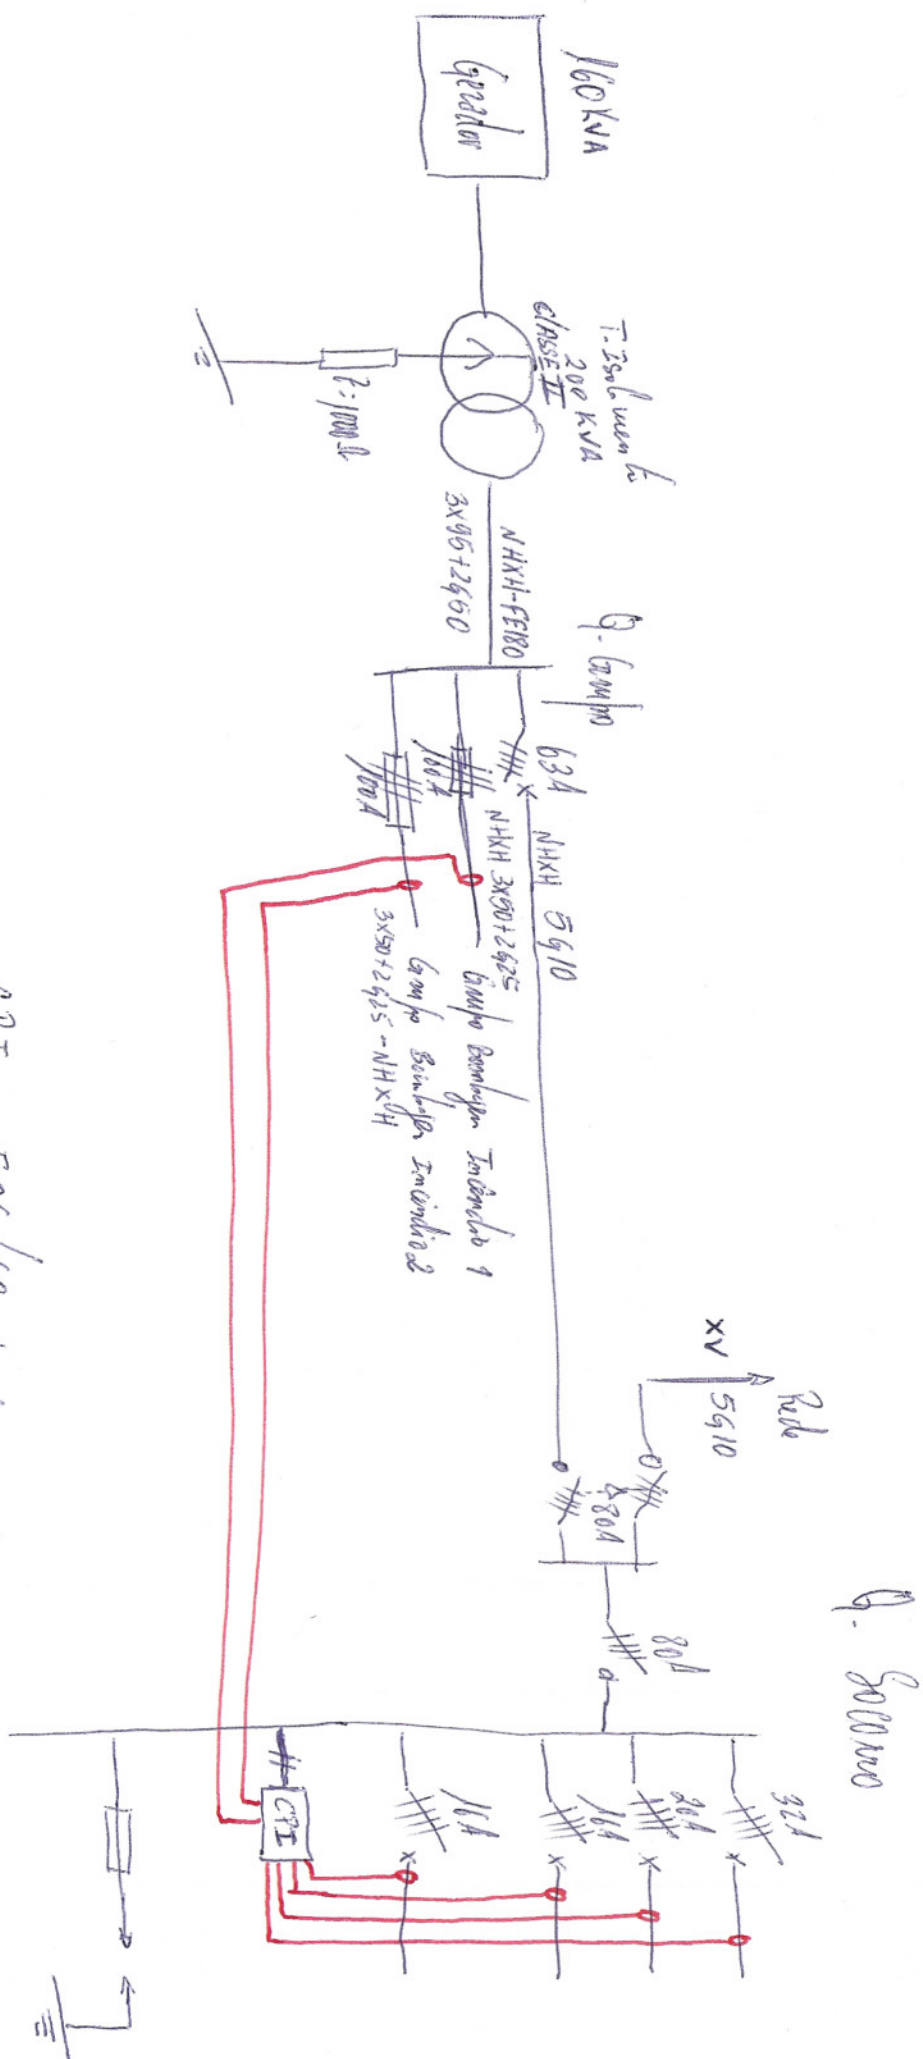 160 KVA
Gerador
T. Isolamento
200 KVA
CLASSE II
Z=1000Ω
NHXH-FE180
3x95+2G50
Q. Grupo
63A
NHXH 5G10
100A
NHXH 3x50+2G25
Grupo Bombagem Incêndio 1
100A
Grupo Bombagem Incêndio 2
3x50+2G25-NHXH
Rede
XV
5G10
80A
Q. Socorro
80A
32A
20A
16A
16A
CPI